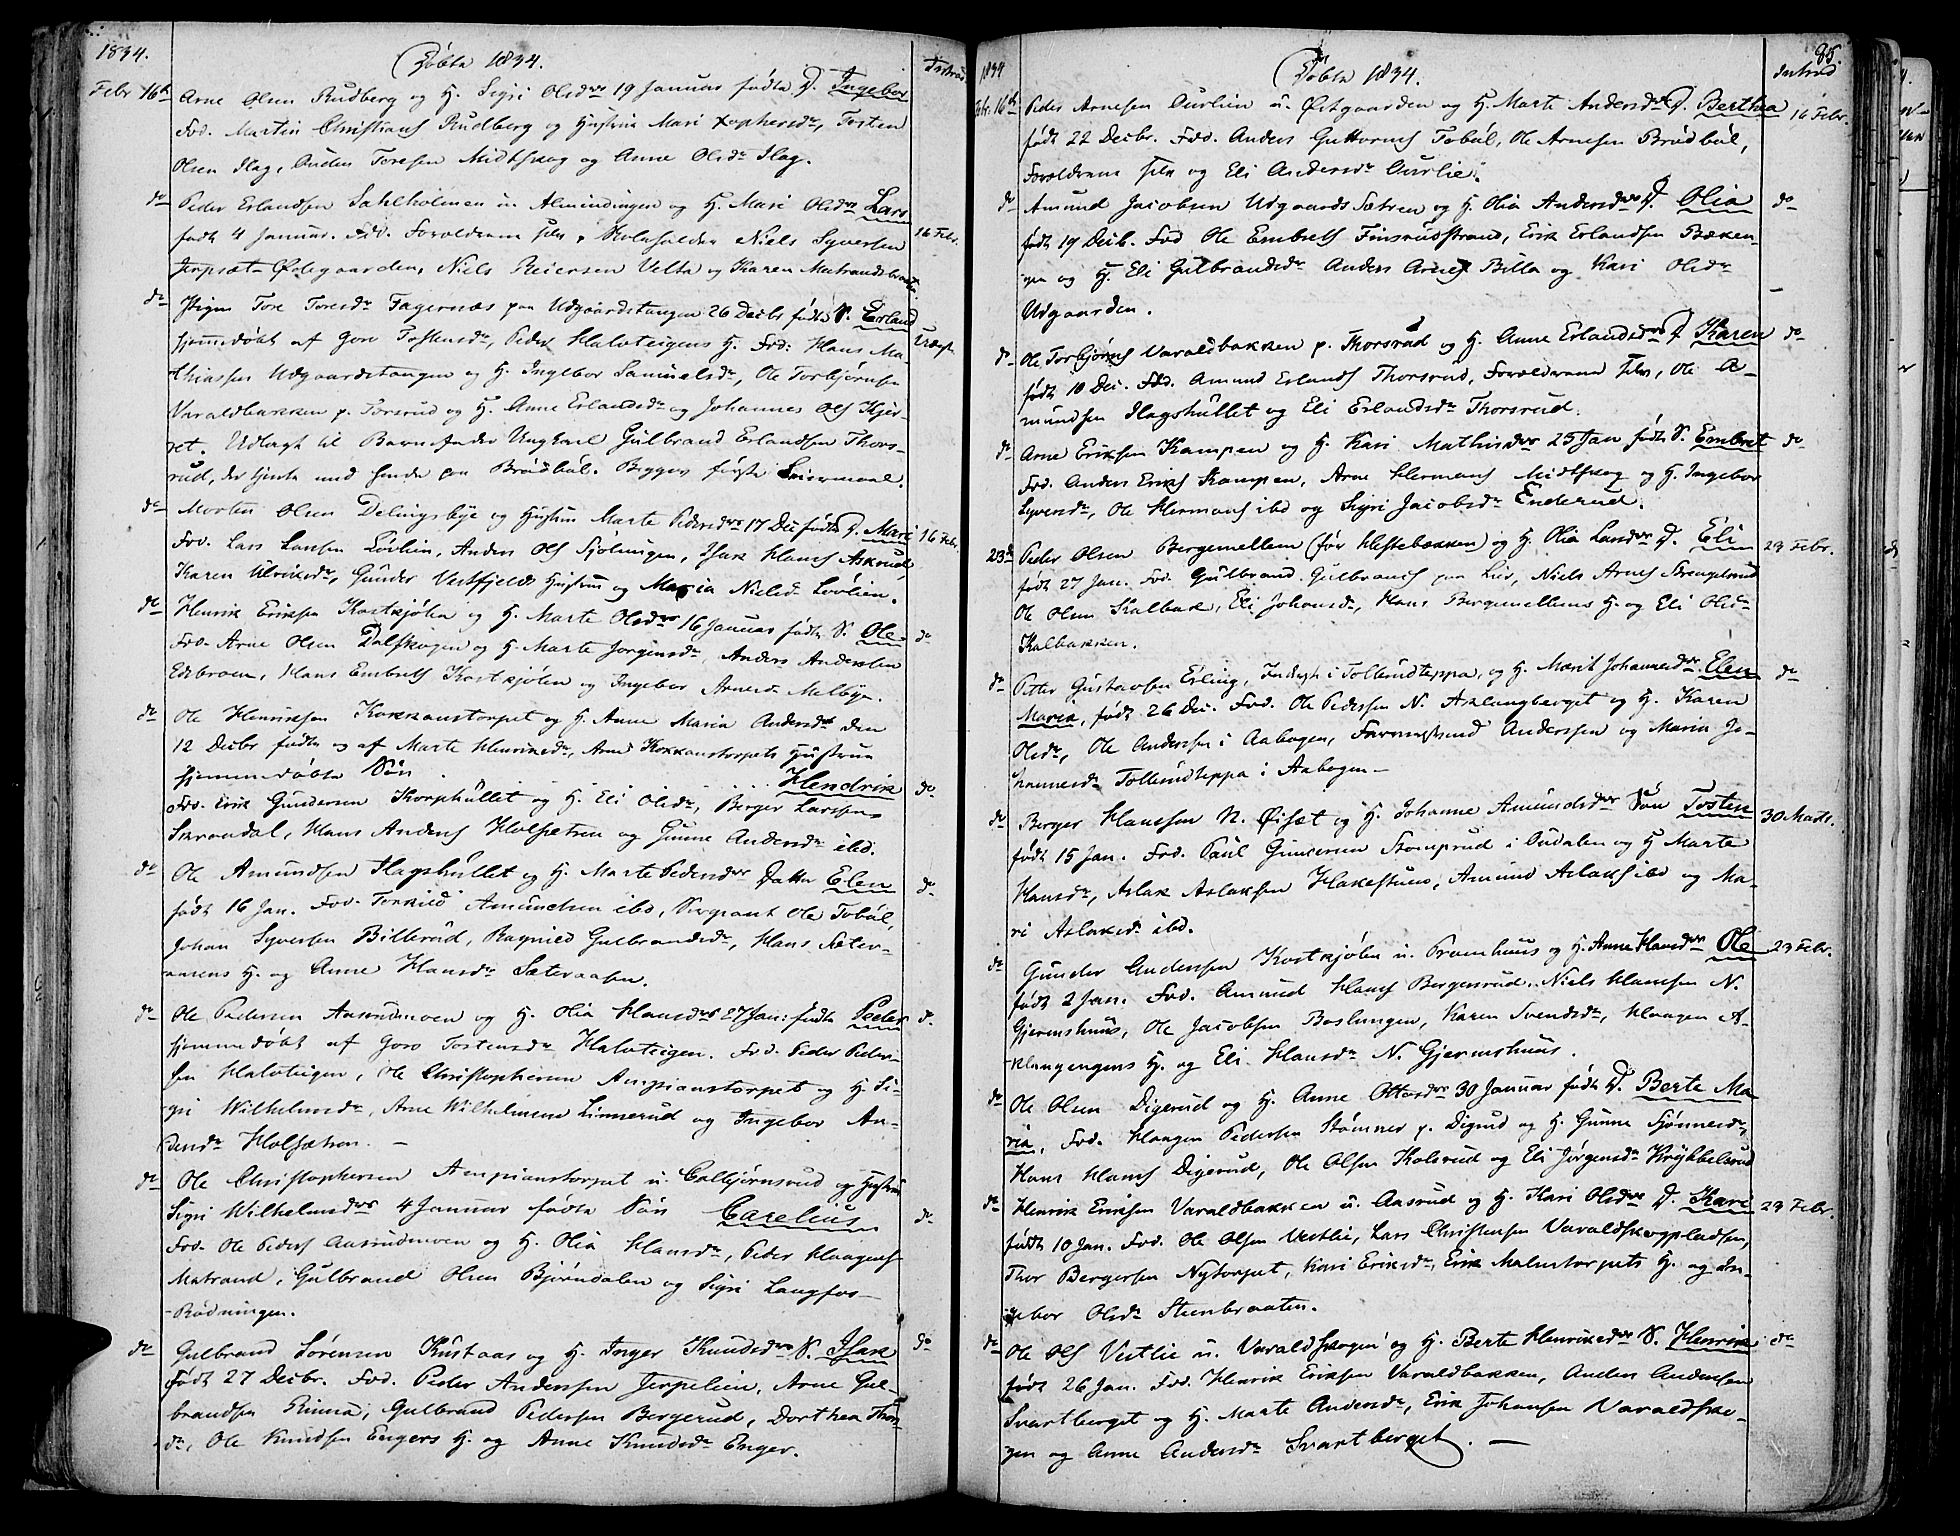 1834.
Døbte 1834.
Febr 16de Arne Olsen Rudberg og H. Sigri Olsdrs 19 Januar fødte D. Ingebor
Fvd. Martin Christians Rudberg og Hustru Mari Xophersdr, Tosten
Olsen Ilag, Anders Toresen Midtskog og Anne Olsdr Ilag.
do Peder Erlandsen Sahlholmen u. Almindingen og H. Mari Olsdrs Lars
født 4 Januar. Fvd. Forældrene selv, Niels Syversen 16 Febr.
Jerpset Ødegaarden, Niels Reiersen Velta og Karen Matrandsbraaten
do Pigen Tore Toresdr Fagernæs paa Udgaardstangen 26 Decbr fødte S. Erland
hjemmedøbt af Goro Tostensdr, Peder Halvteigens H. Fvd: Hans Ma-
thiassen Udgaardstangen og H. Ingebor Samuelsdr, Ole Torbjørnsen
Varaldbakken p. Torsrud og H. Anne Erlandsdr og Johannes Ols Kjer-
ret. Udlagt til Barnefader Ungkarl Gulbrand Erlandsen Thors-
rud, der tjente med hende paa Brødbøl. Begges første Leiermaal.
do Morten Olsen Delingsbye og Hustru Marte Pedersdrs 17 Dec fødte D. Mari 16 Febr.
Fvd. Lars Larsen Løvlien, Anders Ols Sjølungen, Isak Hans Askrud,
Karen Ulriksdr, Gunder Vestfjelds Hustru og Maria Nielsdr Løvlien.
do Henrik Eriksen Kostkjølen og H. Marte Olsdrs 16 Januar fødte S. Ole do
Fvd. Arne Olsen Dalskogen og H. Marte Jørgensdr, Anders Andersen
Edsbroen, Hans Embrets Kostkjølen og Ingebor Arnesdr Melbye.
do Ole Henriksen Kokkanstorpet og H. Anne Maria Andersdr den
12 Decbr fødte og af Marte Henriksdr, Arne Kokkanstorpets Hustru
hjemmedøbte Søn Hendrik do
Fvd. Erik Gundersen Korphullet og H. Eli Olsdr, Berger Larsen
Skrondal, Hans Anders Holsætren og Gunne Andersdr ibd.
do Ole Amundsen Flagshullet og H. Marte Pedersdrs Datter Elen do
født 16 Jan. Fvd. Torkild Amundsen ibd, Sergeant Ole Tobøl,
Johan Syversen Billerud, Ragnild Gulbrandsdr, Hans Sæter-
aasens H. og Anne Hansdr Sæteraasen.
do Ole Pedersen Aasrudmoen og H. Olia Hansdrs 27 Jan: fødte Peder do
hjemmedøbt af Goro Tostensdr Halvteigen. Fvd. Peder Peder-
sen Halvteigen, Ole Christophersen Ampianstorpet og H. Si-
gri Wilhelmsdr, Arne Wilhelmsen Linnerud og Ingebor An-
dersdr Holsætren. —
do Ole Christophersen Ampianstorpet u. Colbjørnsrud og Hustru
Sigri Wilhelmsdrs 4 Januar fødte Søn Carelius do
Fvd. Ole Peders Aasrudmoen og H. Olia Hansdr, Peder Haagens
Matrand, Gulbrand Olsen Bjørndalen og Sigri Langfos-
Rødningen.
do Gulbrand Sørensen Kustaas og H. Inger Knudsdrs S. Isak do
født 27 Decbr. Fvd. Peder Andersen Jerpelien, Arne Gul-
brandsen Rinna, Gulbrand Pedersen Bergerud, Dorthea Thors-
dr, Ole Knudsen Engers H. og Anne Knudsdr Enger.
1834
Døbte 1834.
85.
Febr. 16de Peder Arnesen Aurlien u. Østgaarden og H. Marte Andersdrs D. Berthea 16 Febr.
født 22 Decbr. Fvd. Anders Guttorms Tobøl, Ole Arnesen Brødbøl,
Forældrene selv og Eli Andersdr Aurlie.
do Amund Jacobsen Udgaards Sætren og H. Olia Andersdrs D. Olia do
født 19 Decb. Fvd Ole Embrets Finsrudstrand, Erik Erlandsen Bæken-
gen og H. Eli Gulbrandsdr Anders Arnes Billa og Kari Olsdr
Udgaarden.
do Ole Torbjørns Varaldbakken p. Thorsrud og H. Anne Erlandsdrs D Karen do
født 10 Dec. Fvd. Amund Erlands Thorsrud, Forældrene selv, Ole A-
mundsen Ilagshullet og Eli Erlandsdr Thorsrud.
do Arne Eriksen Kampen og H. Kari Mathisdrs 25 Jan fødte S. Embret do
Fvd. Anders Eriks Kampen, Arne Hermans Midtskog og H. Ingebor
Syversdr, Ole Hermans ibd og Sigri Jacobsdr Enderud.
23de Peder Olsen Bergemellem (før Hestebækken) og H. Olia Larsdrs D. Eli 23 Febr.
født 27 Jan. Fvd. Gulbrand Gulbrands paa Lier, Niels Arnes Strengelsrud
Ole Olsen Kalbak, Eli Johansdr, Hans Bergemellems H. og Eli Olsdr
Kalbakken.
do Petter Gustavsen Erling, Inderst i Tollerudteppa, og H. Marit Johannesdrs Elen do
Maria, født 26 Dec. Fvd. Ole Pedersen N. Aslangberget og H. Karen
Olsdr, Ole Andersen i Aabogen, Andersen og Maria Jo-
hannesdr Tollerudteppa i Aabogen —
do Berger Hansen N. Øiset og H. Johanne Amundsdrs Søn Tosten 30 Marts.
født 15 Jan. Fvd. Paul Gundersen Stomprud i Oudalen og H Marte
Hansdr, Aslak Aslaksen Hakestuen, Amund Aslaks ibd og Ma-
ri Aslaksdr ibd.
do Gunder Andersen Kostkjølen u. Pramhuus og H. Anne Hansdrs Ole 23 Febr.
født 2 Jan. Fvd. Amund Hans Bergersrud, Niels Hansen N.
Gjermshuus, Ole Jacobsen Baslungen, Karen Svendsdr, Haagen A-
klangengens H. og Eli Hansdr N. Gjermshuus.
do Ole Olsen Digerud og H. Anne Ottersdrs 30 Januar fødte D. Berte Ma-
ria, Fvd. Haagen Pedersen Stømner p. Digrud og H. Gunne Sjønnesdr,
Hans Hans Digerud, Ole Olsen Kolsrud og Eli Jørgensdr Krykkelsrud
do Henrik Eriksen Varaldbakken u. Aasrud og H. Kari Olsdrs D. Kari 23 Febr.
født 10 Jan. Fvd. Ole Olsen Vestlie, Lars Christensen Varaldskogpladsen,
Thor Bergersen Nytorpet, Kari Eriksdr, Erik Malmtorpets H. og In-
gebor Olsdr Steenbraaten.
do Ole Ols Vestlie u. Varaldskogen og H. Berte Henriksdrs S. Henrik do
født 26 Jan. Fvd. Henrik Eriksen Varaldbakken, Anders Andersen
Svartberget og H. Marte Andersdr, Erik Johansen Varaldsko-
gen og Anne Andersdr Svartberget. —